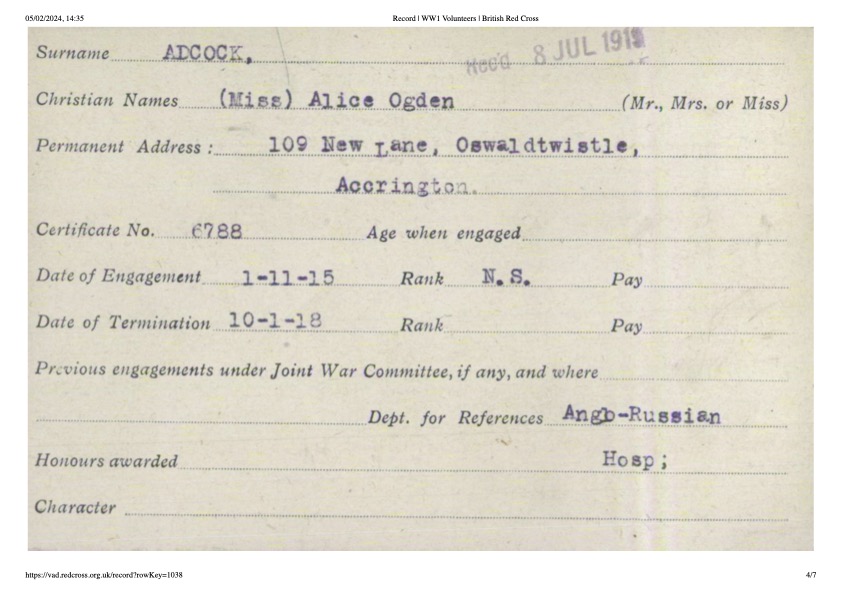 05/02/2024, 14:35 Record | WW1 Volunteers | British Red Cross
Rec'd 8 JUL 1919
Surname ADCOCK,
Christian Names (Miss) Alice Ogden (Mr., Mrs. or Miss)
Permanent Address : 109 New Lane, Oswaldtwistle,
Accrington.
Certificate No. 6788 Age when engaged
Date of Engagement 1-11-15 Rank N.S. Pay
Date of Termination 10-1-18 Rank Pay
Previous engagements under Joint War Committee, if any, and where
Dept. for References Anglo-Russian
Honours awarded Hosp;
Character
https://vad.redcross.org.uk/record?rowKey=1038 4/7